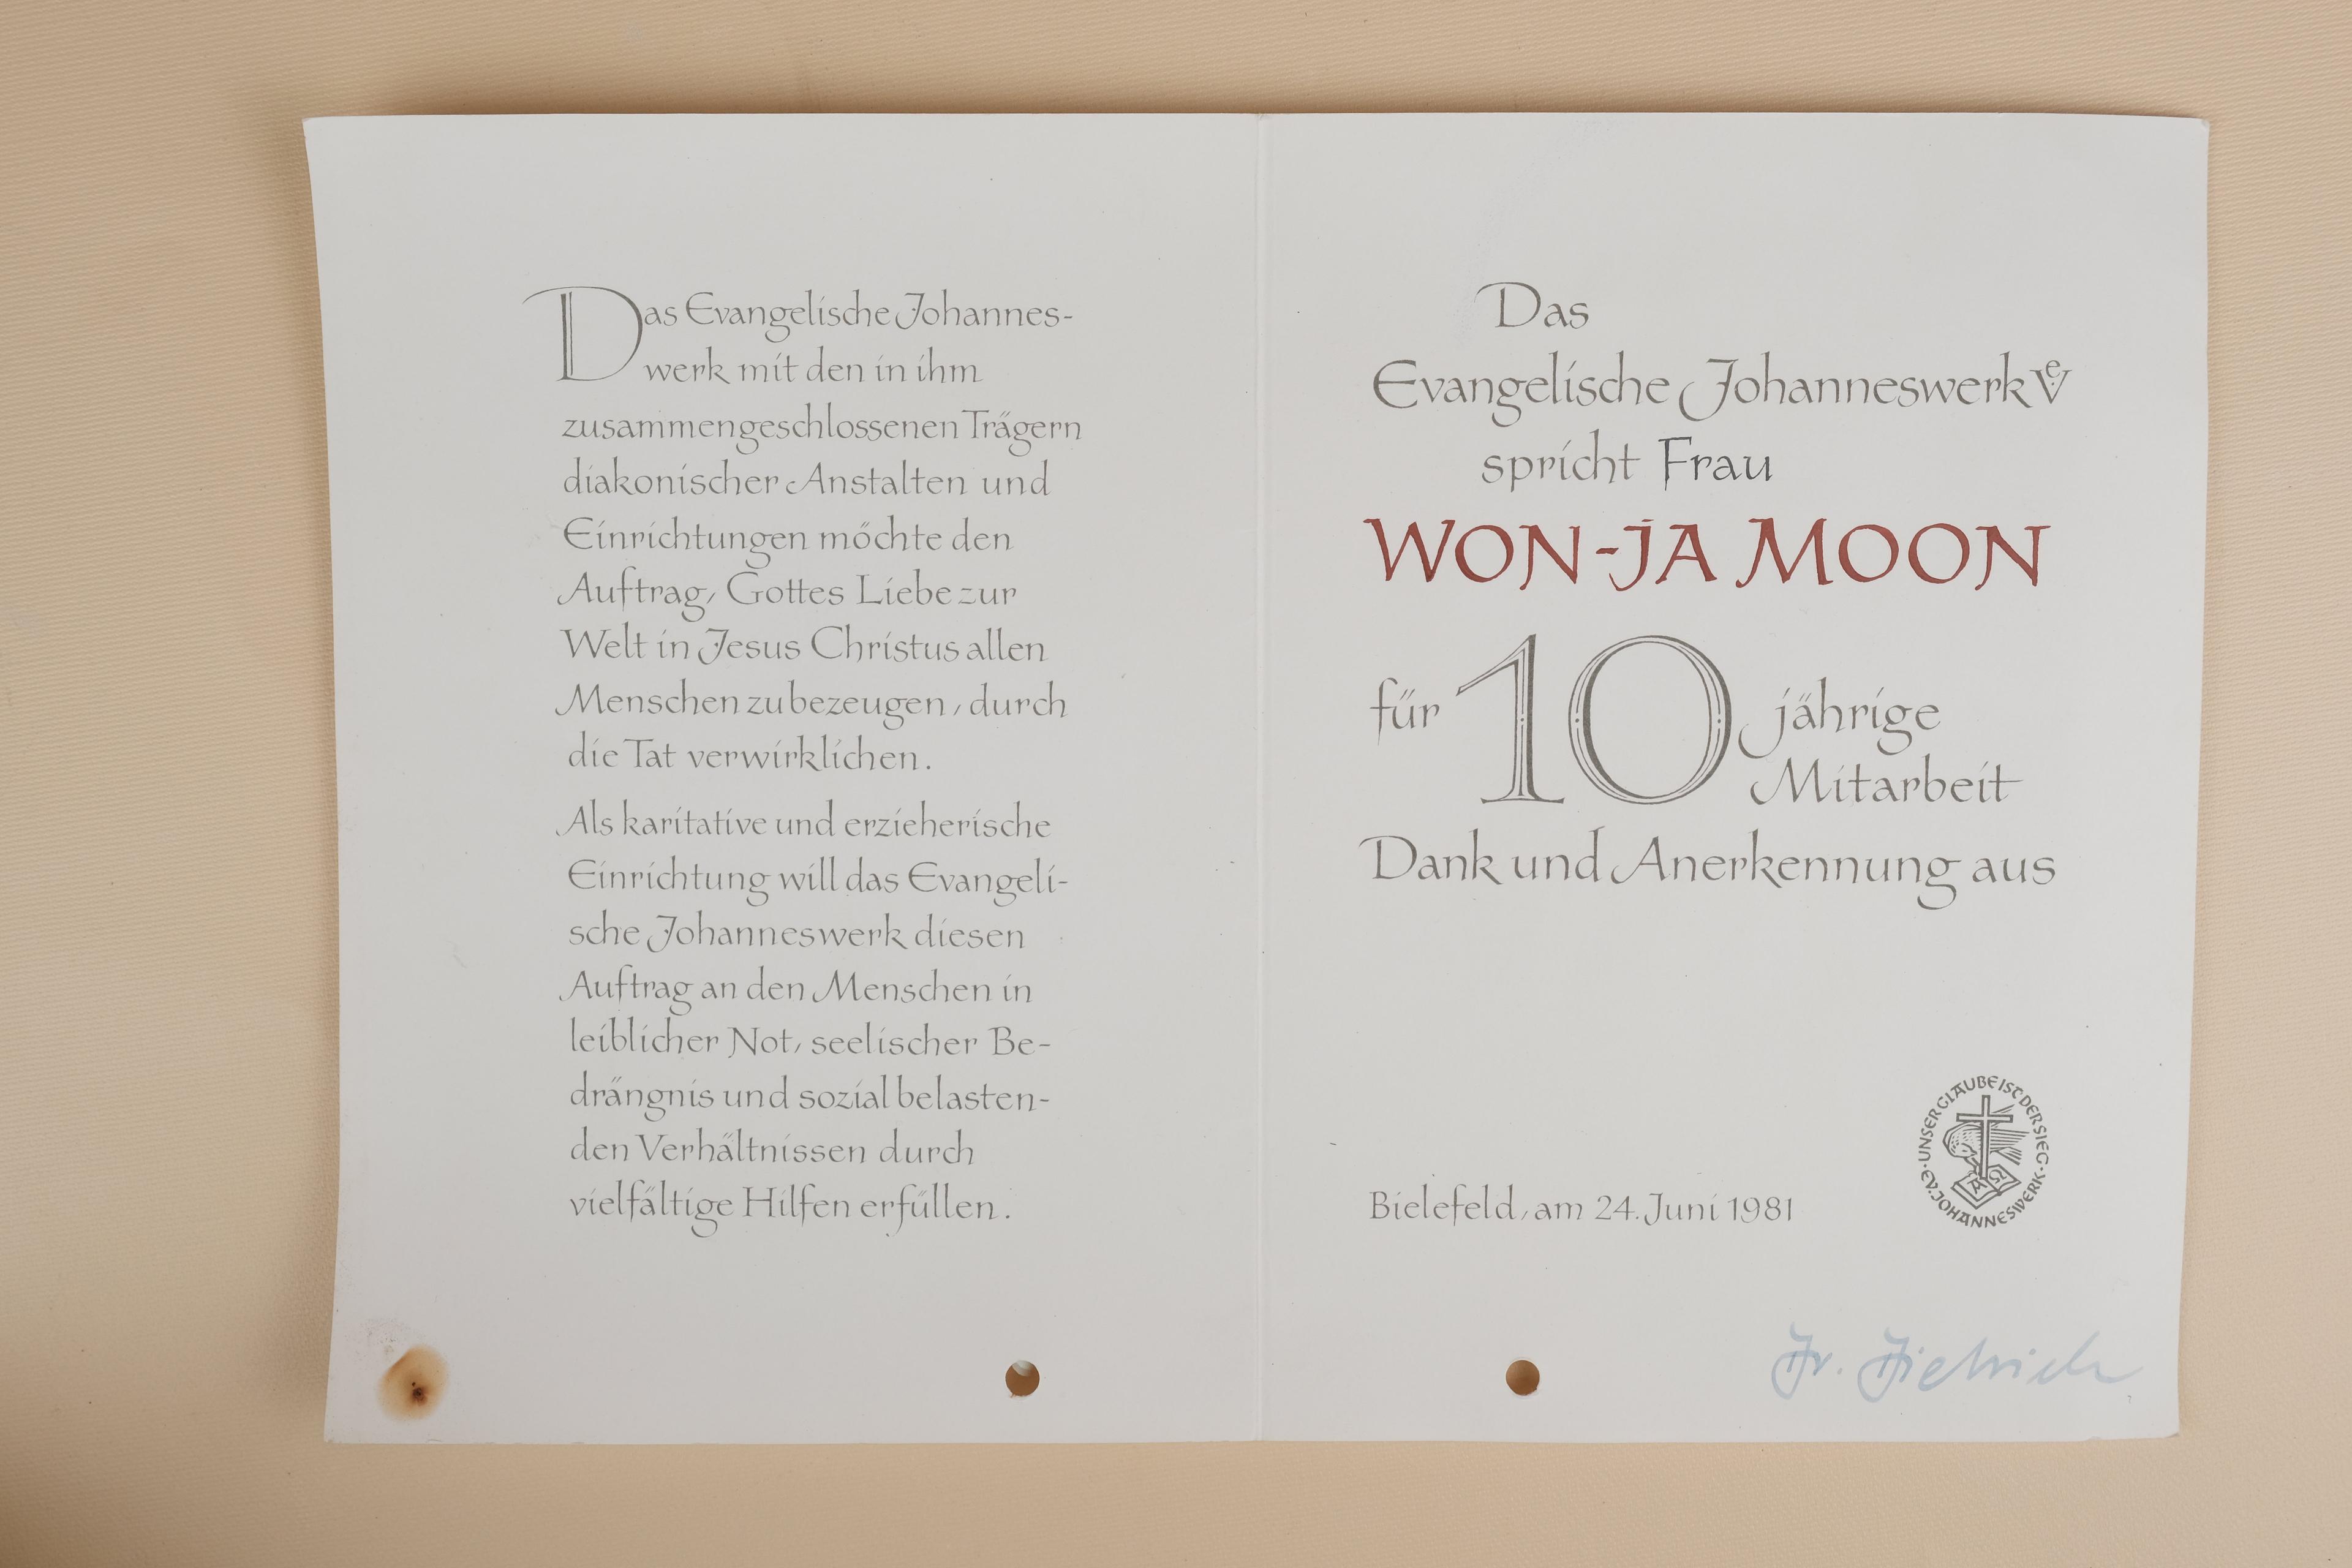 Das Evangelische Johannes-
werk mit den in ihm
zusammengeschlossenen Trägern
diakonischer Anstalten und
Einrichtungen möchte den
Auftrag, Gottes Liebe zur
Welt in Jesus Christus allen
Menschen zu bezeugen, durch
die Tat verwirklichen.
Als karitative und erzieherische
Einrichtung will das Evangeli-
sche Johanneswerk diesen
Auftrag an den Menschen in
leiblicher Not, seelischer Be-
drängnis und sozial belasten-
den Verhältnissen durch
vielfältige Hilfen erfüllen.
Das
Evangelische Johanneswerk eV
spricht Frau
WON-JA MOON
für 10 jährige
Mitarbeit
Dank und Anerkennung aus
UNSER GLAUBE IST DER SIEG · EV. JOHANNESWERK ·
A Ω
Bielefeld, am 24. Juni 1981
Dr. Dietrich